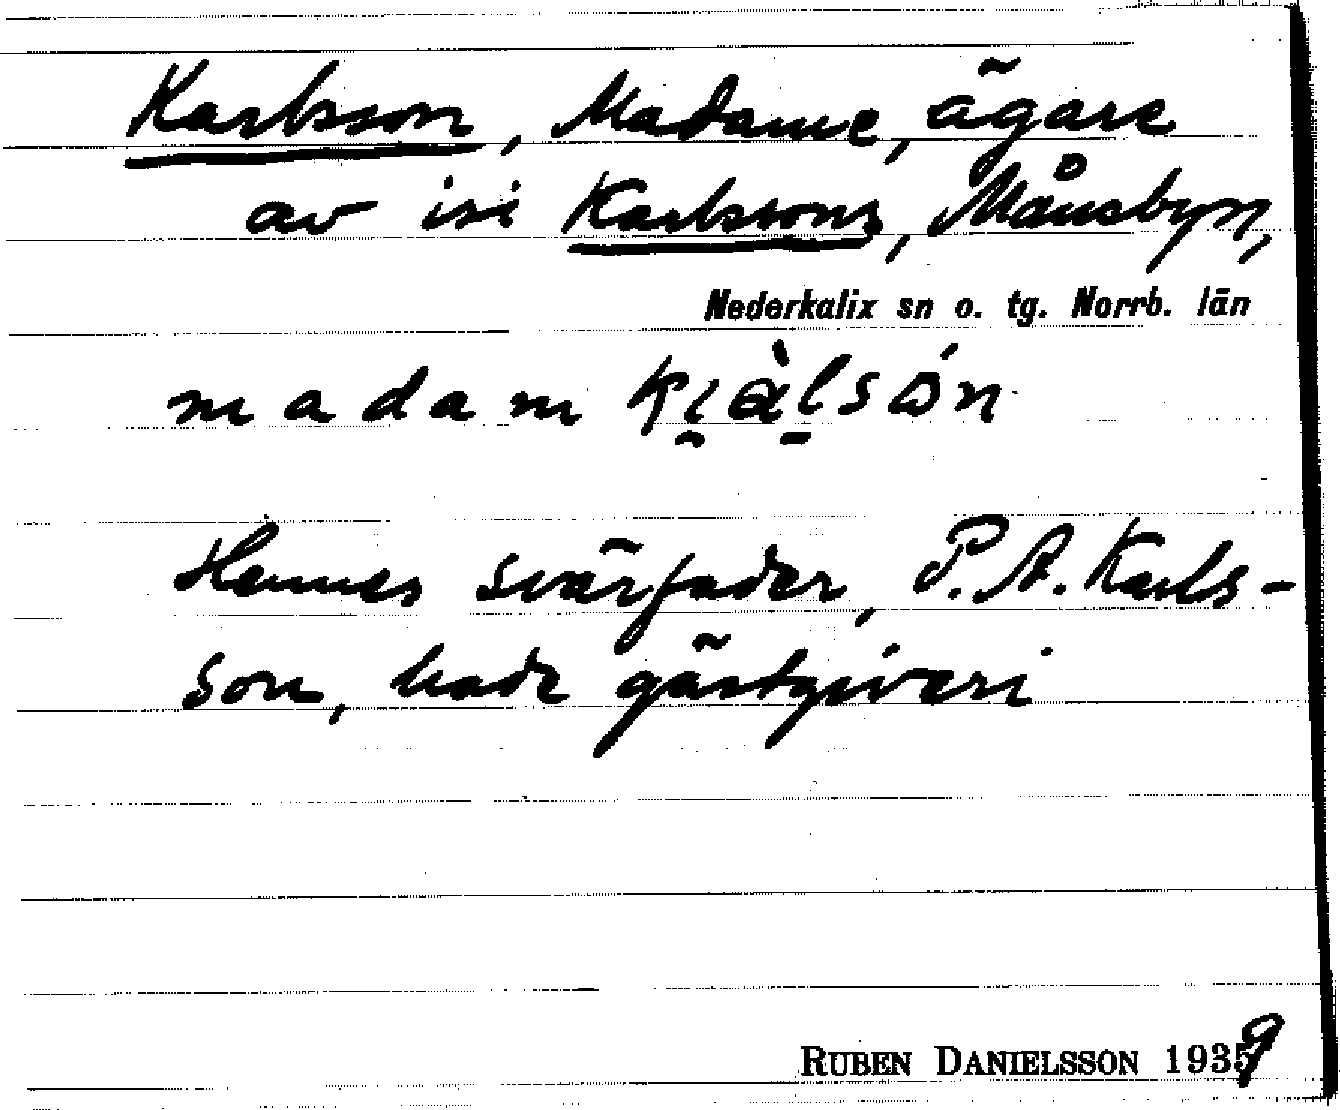 Karlsson, Madame, ägare
av isi Karlssons, Månsbyn,
Nederkalix sn o. tg. Norrb. län
madam
Hennes svärfader, P.A. Karls-
son, hade gästgiveri
RUBEN DANIELSSON 1939